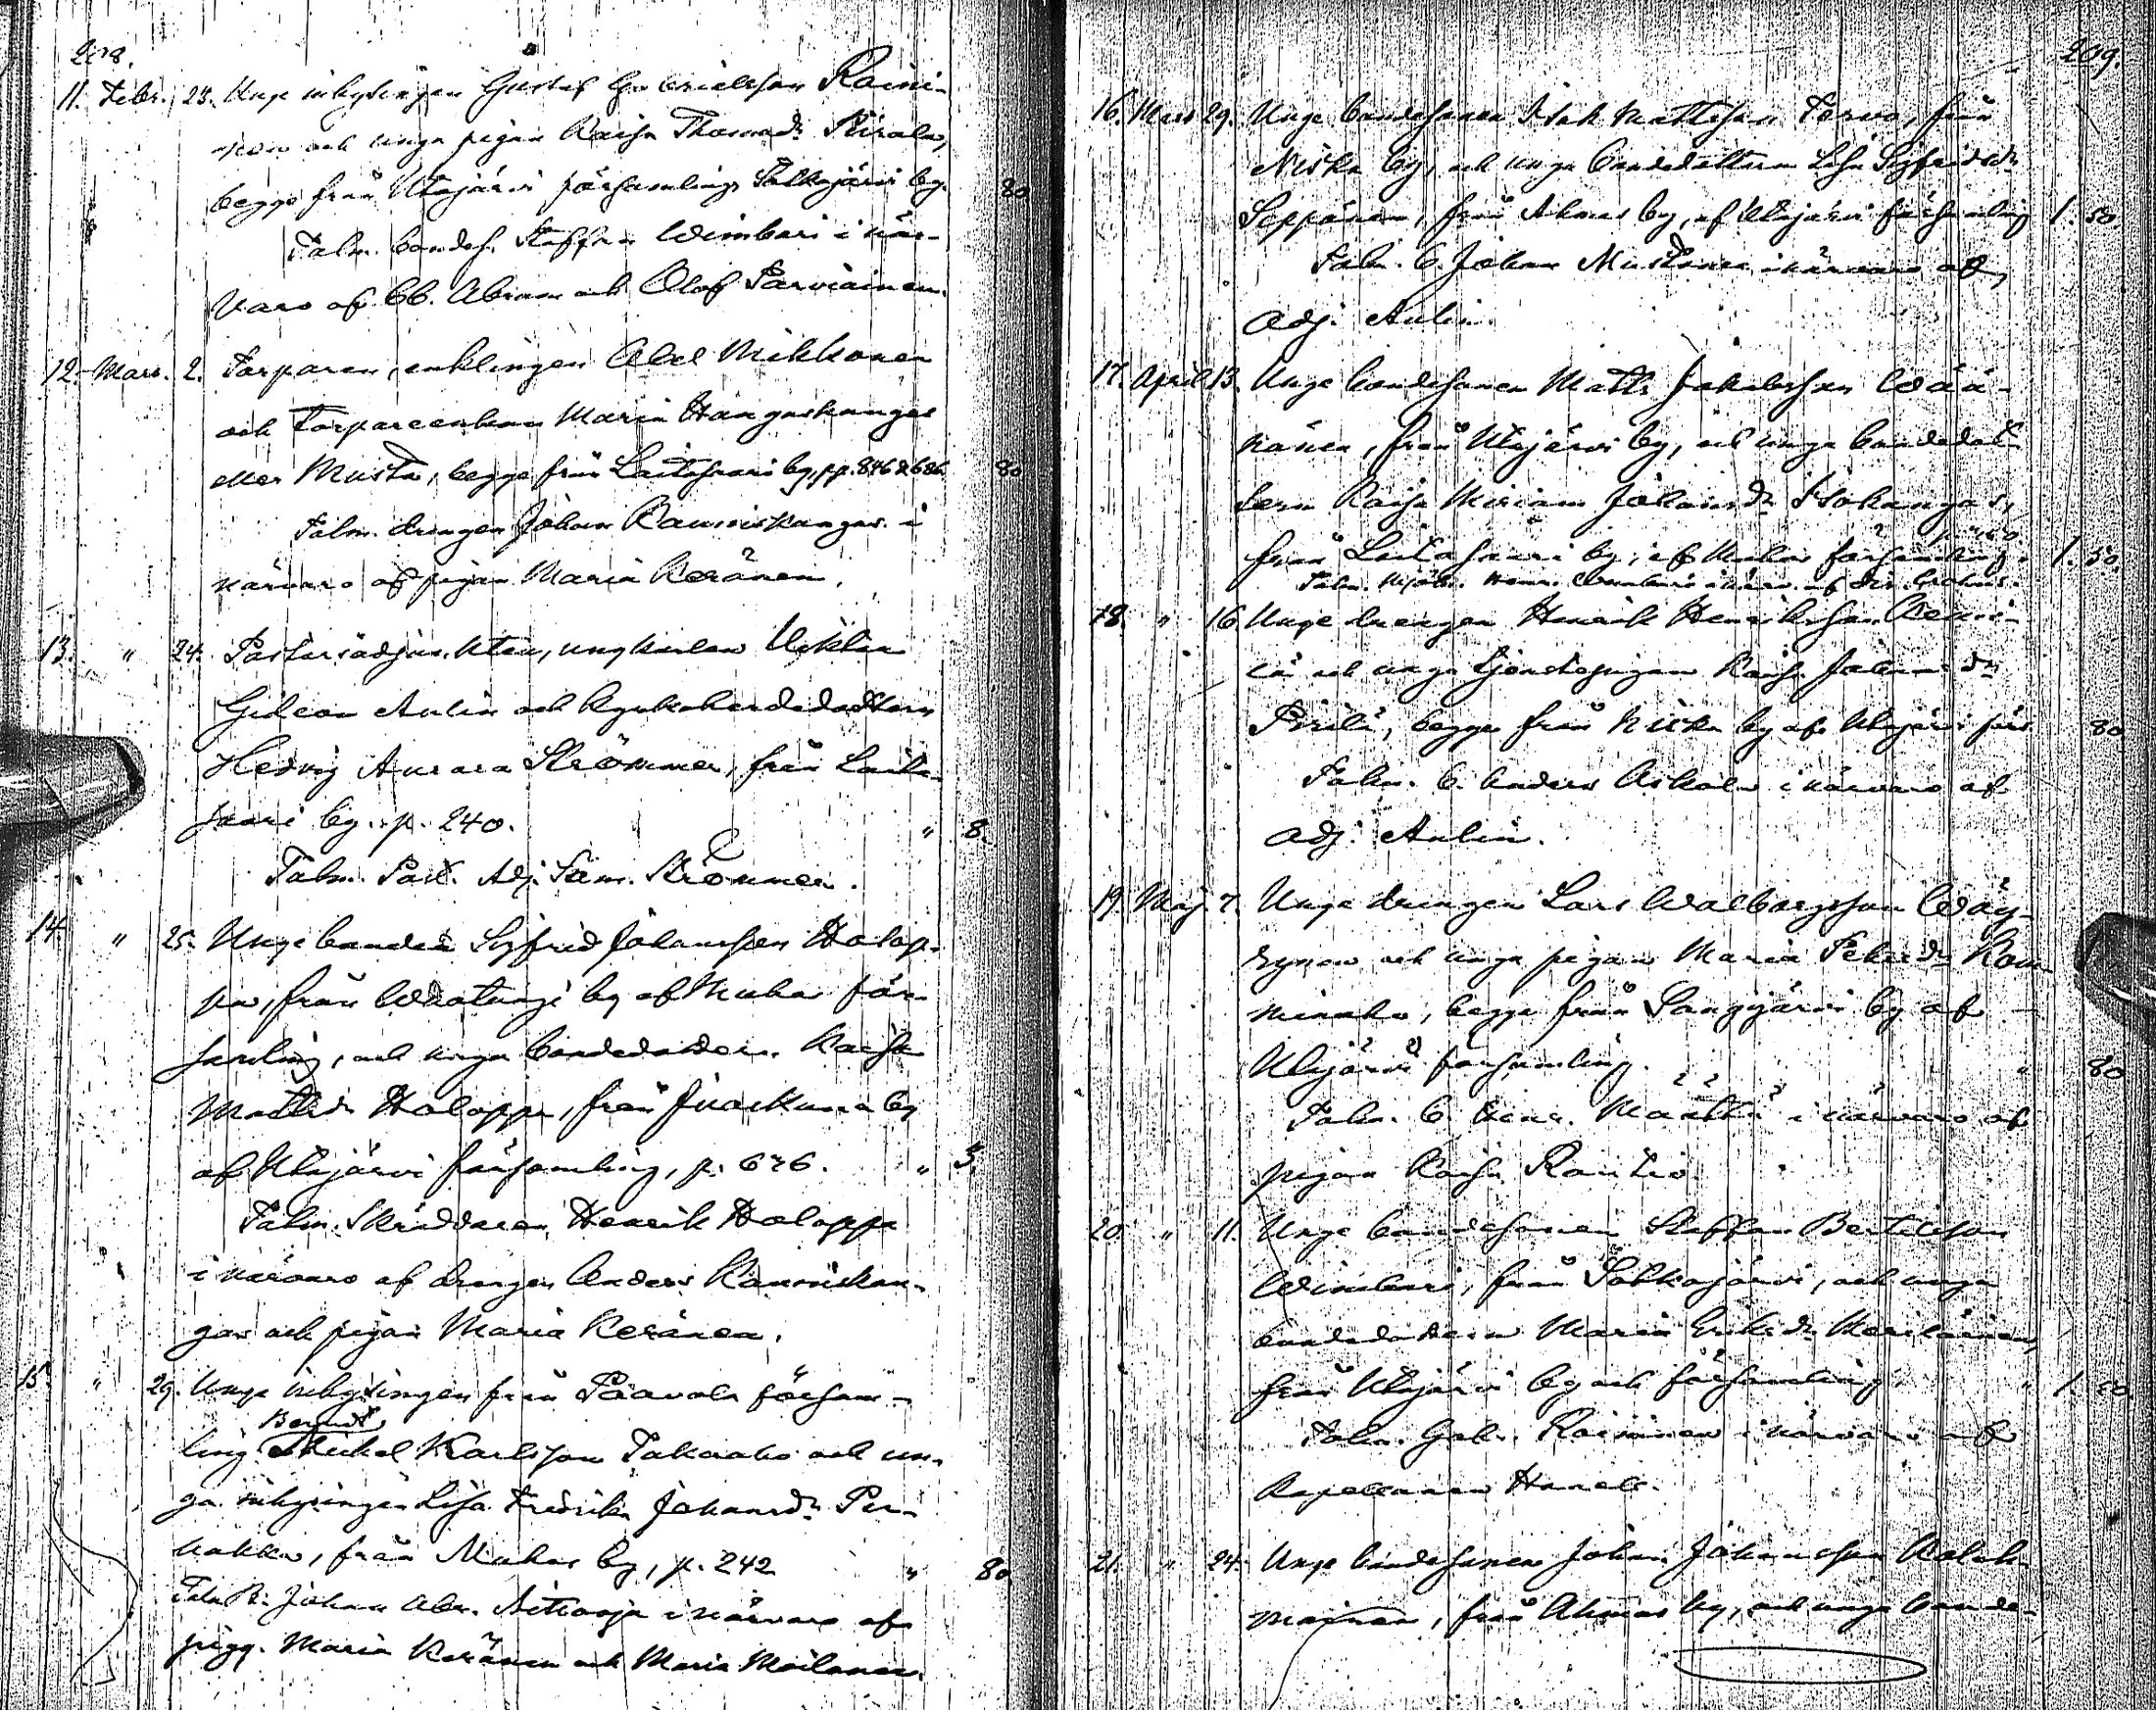 208.
11. Febr. 23. Unge inhysingen Gustaf Gabrielsson Raini-
nen och unga pigan Kaisa Thomasdr Pirala,
begge från Utajärvi församlings Sotkajärvi by. 80
Talm. bondes. Staffan Wimbari i när-
varo af bb. Abram och Olof Parviainen.
12. Mars. 2. Torparen, enklingen Abel Mikkonen
och Torpareenkan Maria Hangaskangas
eller Musta, begge från Laitasaari by, pp. 846 & 686. 80
Talm. drengen Johan Kauniskangas i
närvaro af pigan Maria Keränen.
13. " 24. Pastorsadjunkten, ungkarlen Viktor
Gideon Aulin och Kyrkoherdedottern
Hedvig Aurora Strömmer, från Laita-
saari by. p. 240. " 8.
Talm. Past. Adj. Sam. Strömmer.
14. " 25. Unge bonden Sigfrid Johansson Holap-
pa, från by af Muhos för-
samling, och unga bondedottern Kaisa
Mattsdr Holappa, från Juorkuna by
af Utajärvi församling, p. 676. " 3.
Talm. Skräddaren Henrik Holappa
i närvaro af drengen Anders Kauniskan-
gas och pigan Maria Keränen.
15. " 29. Unge inhysingen från Paavola försam-
Berndt
ling Mickel Karlsson Takaaho och un-
ga inhysingen Lisa Fredrika Johansdr Pu-
hakka, från Muhos by, p. 242 " 80.
Talm. B. Johan Abr. i närvaro af
pigg. Maria Keränen och Maria Moilanen.
209.
16. Mars 29. Unge bondesonen Isak Mattsson Tervo, från
Niska by, och unga bondedottern Lisa Sigfridsdr
Seppänen, från Ahmas by, af Utajärvi församling 1. 50.
Talm. b. Johan Mustonen i närvaro af
Adj. Aulin.
17. April 13. Unge bondesonen Matts Jakobsson Wää-
nänen, från Utajärvi by, och unga bondedot-
tern Kaisa Miriam Johansdr Isokangas,
från Laitasaari by, af Muhos församling. 1. 50.
18. " 16. Unge drengen Henrik Henriksson
och unga tjenstepigan Kaisa Johansdr
Pirilä, begge från Niska by af Utajärvi förs. 80
Talm. b. Anders Askola i närvaro af
Adj. Aulin.
19. Maj. 7. Unge drengen Lars Walborgsson Wäy-
rynen och unga pigan Maria Petersdr Kou-
, begge från Sanginjärvi by af
Utajärvi församling. " 80
Talm. b. Henr. Määttä i närvaro af
pigan Kaisa Rontio.
20. " 11. Unge bondesonen Staffan Bertilsson
Wimbari, från Sotkajärvi, och unga
bondedottern Maria Eriksdr Meriläinen,
från Utajärvi by och församling. " 1. 50
Talm. Gab. Raininen i närvaro af
Kapellanen .
21. " 24. Unge bondesonen Johan Johansson Kaleh-
mainen, från Ahmas by, och unga bonde-